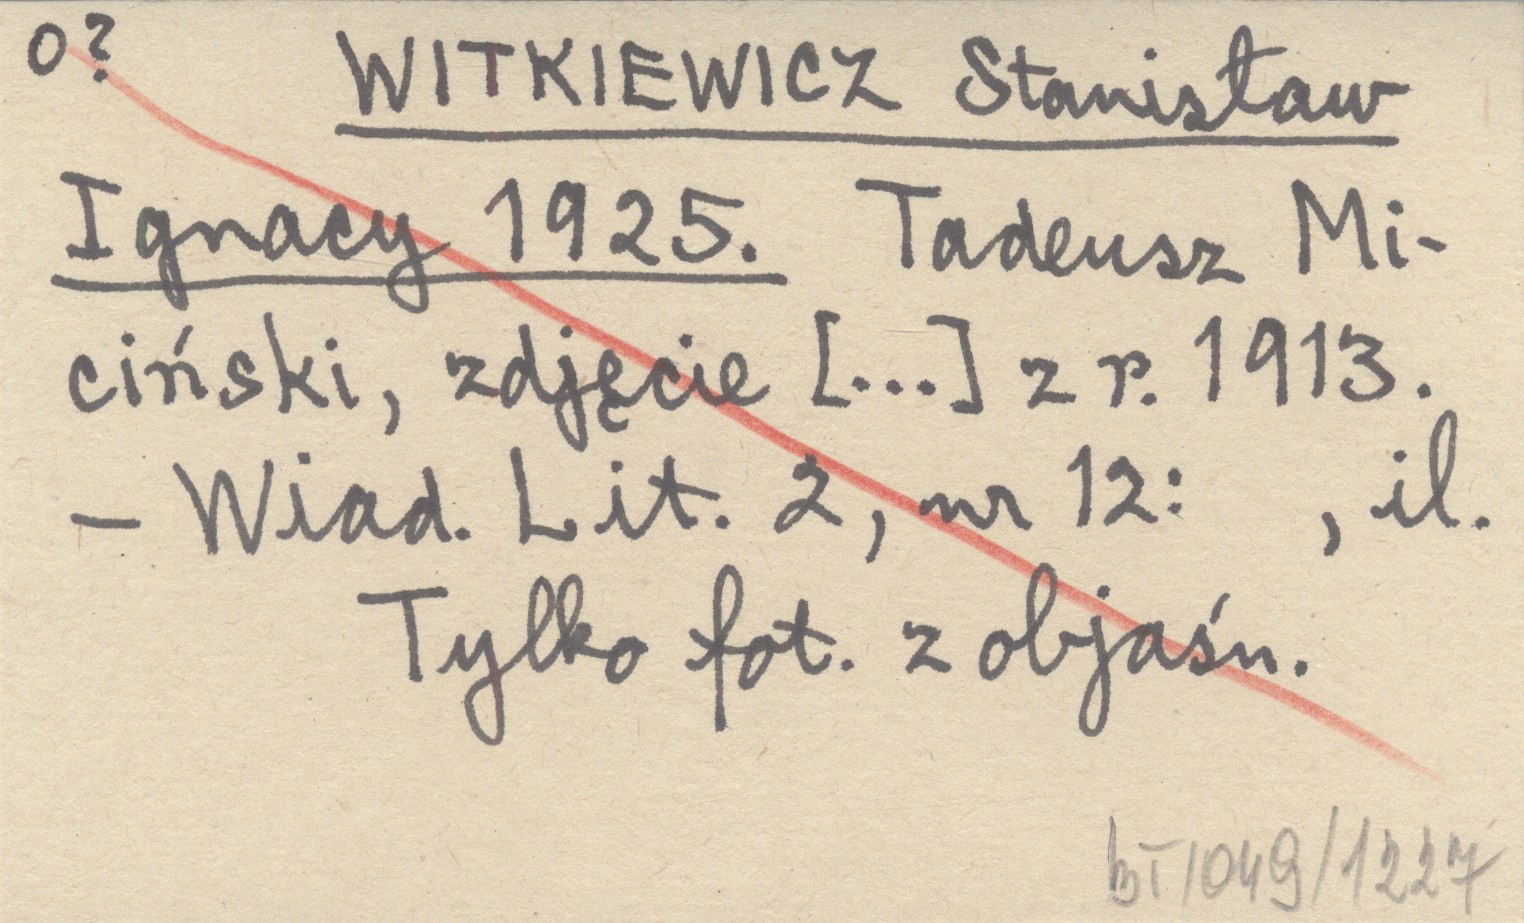 o?
WITKIEWICZ Stanisław
Ignacy 1925. Tadeusz Mi-
ciński, zdjęcie [...] z r. 1913.
– Wiad. Lit. 2, nr 12: , il.
Tylko fot. z objaśn.
BT/049/1227